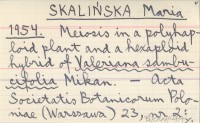 SKALIŃSKA Maria
1954. Meiosis in a polyhap-
loid plant and a hexaploid
hybrid of Valeriana sambu-
cifolia Mikan. — Acta
Societatis Botanicorum Polo-
niae (Warszawa) 23, nr 2: